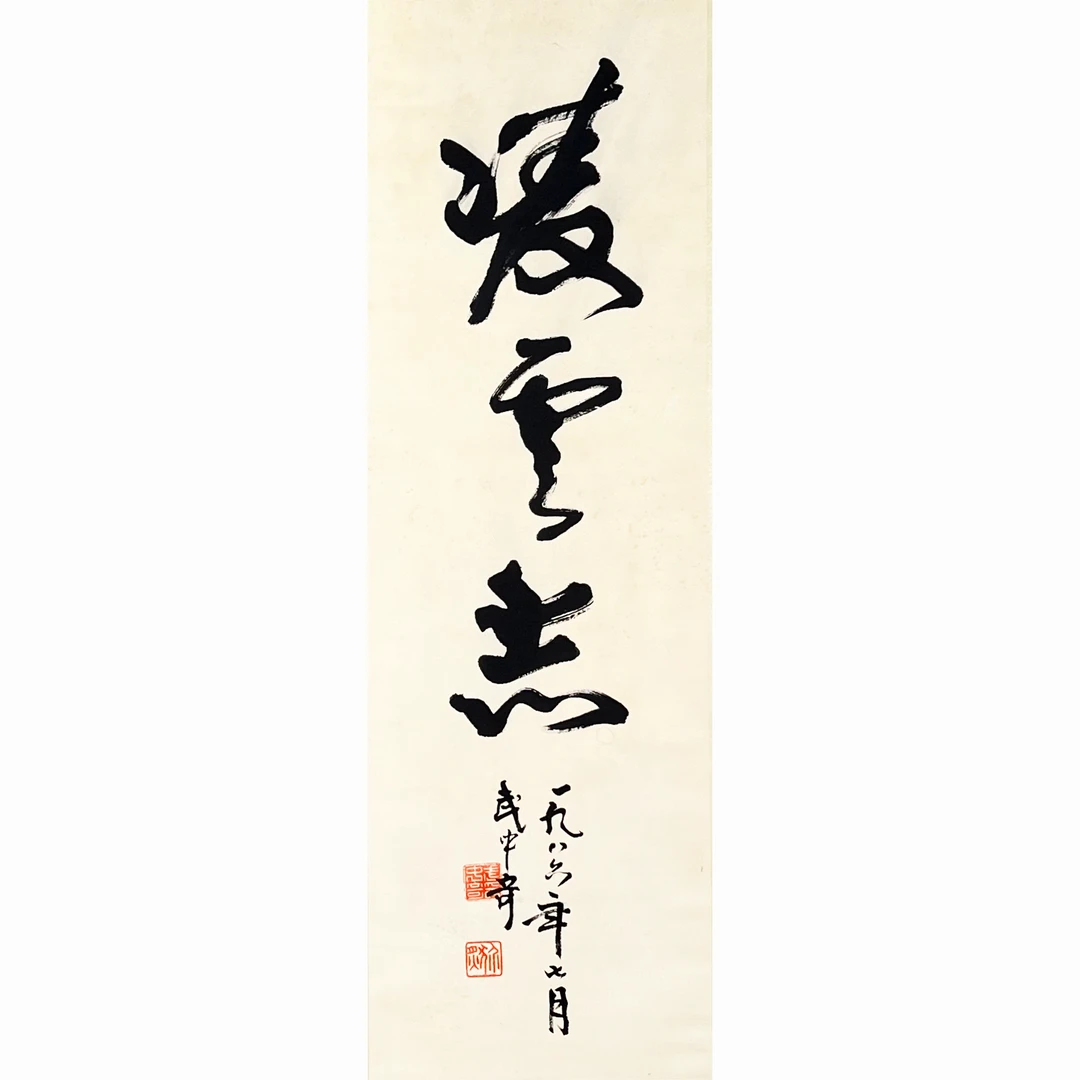 凌云志
一九八六年七月
武中奇